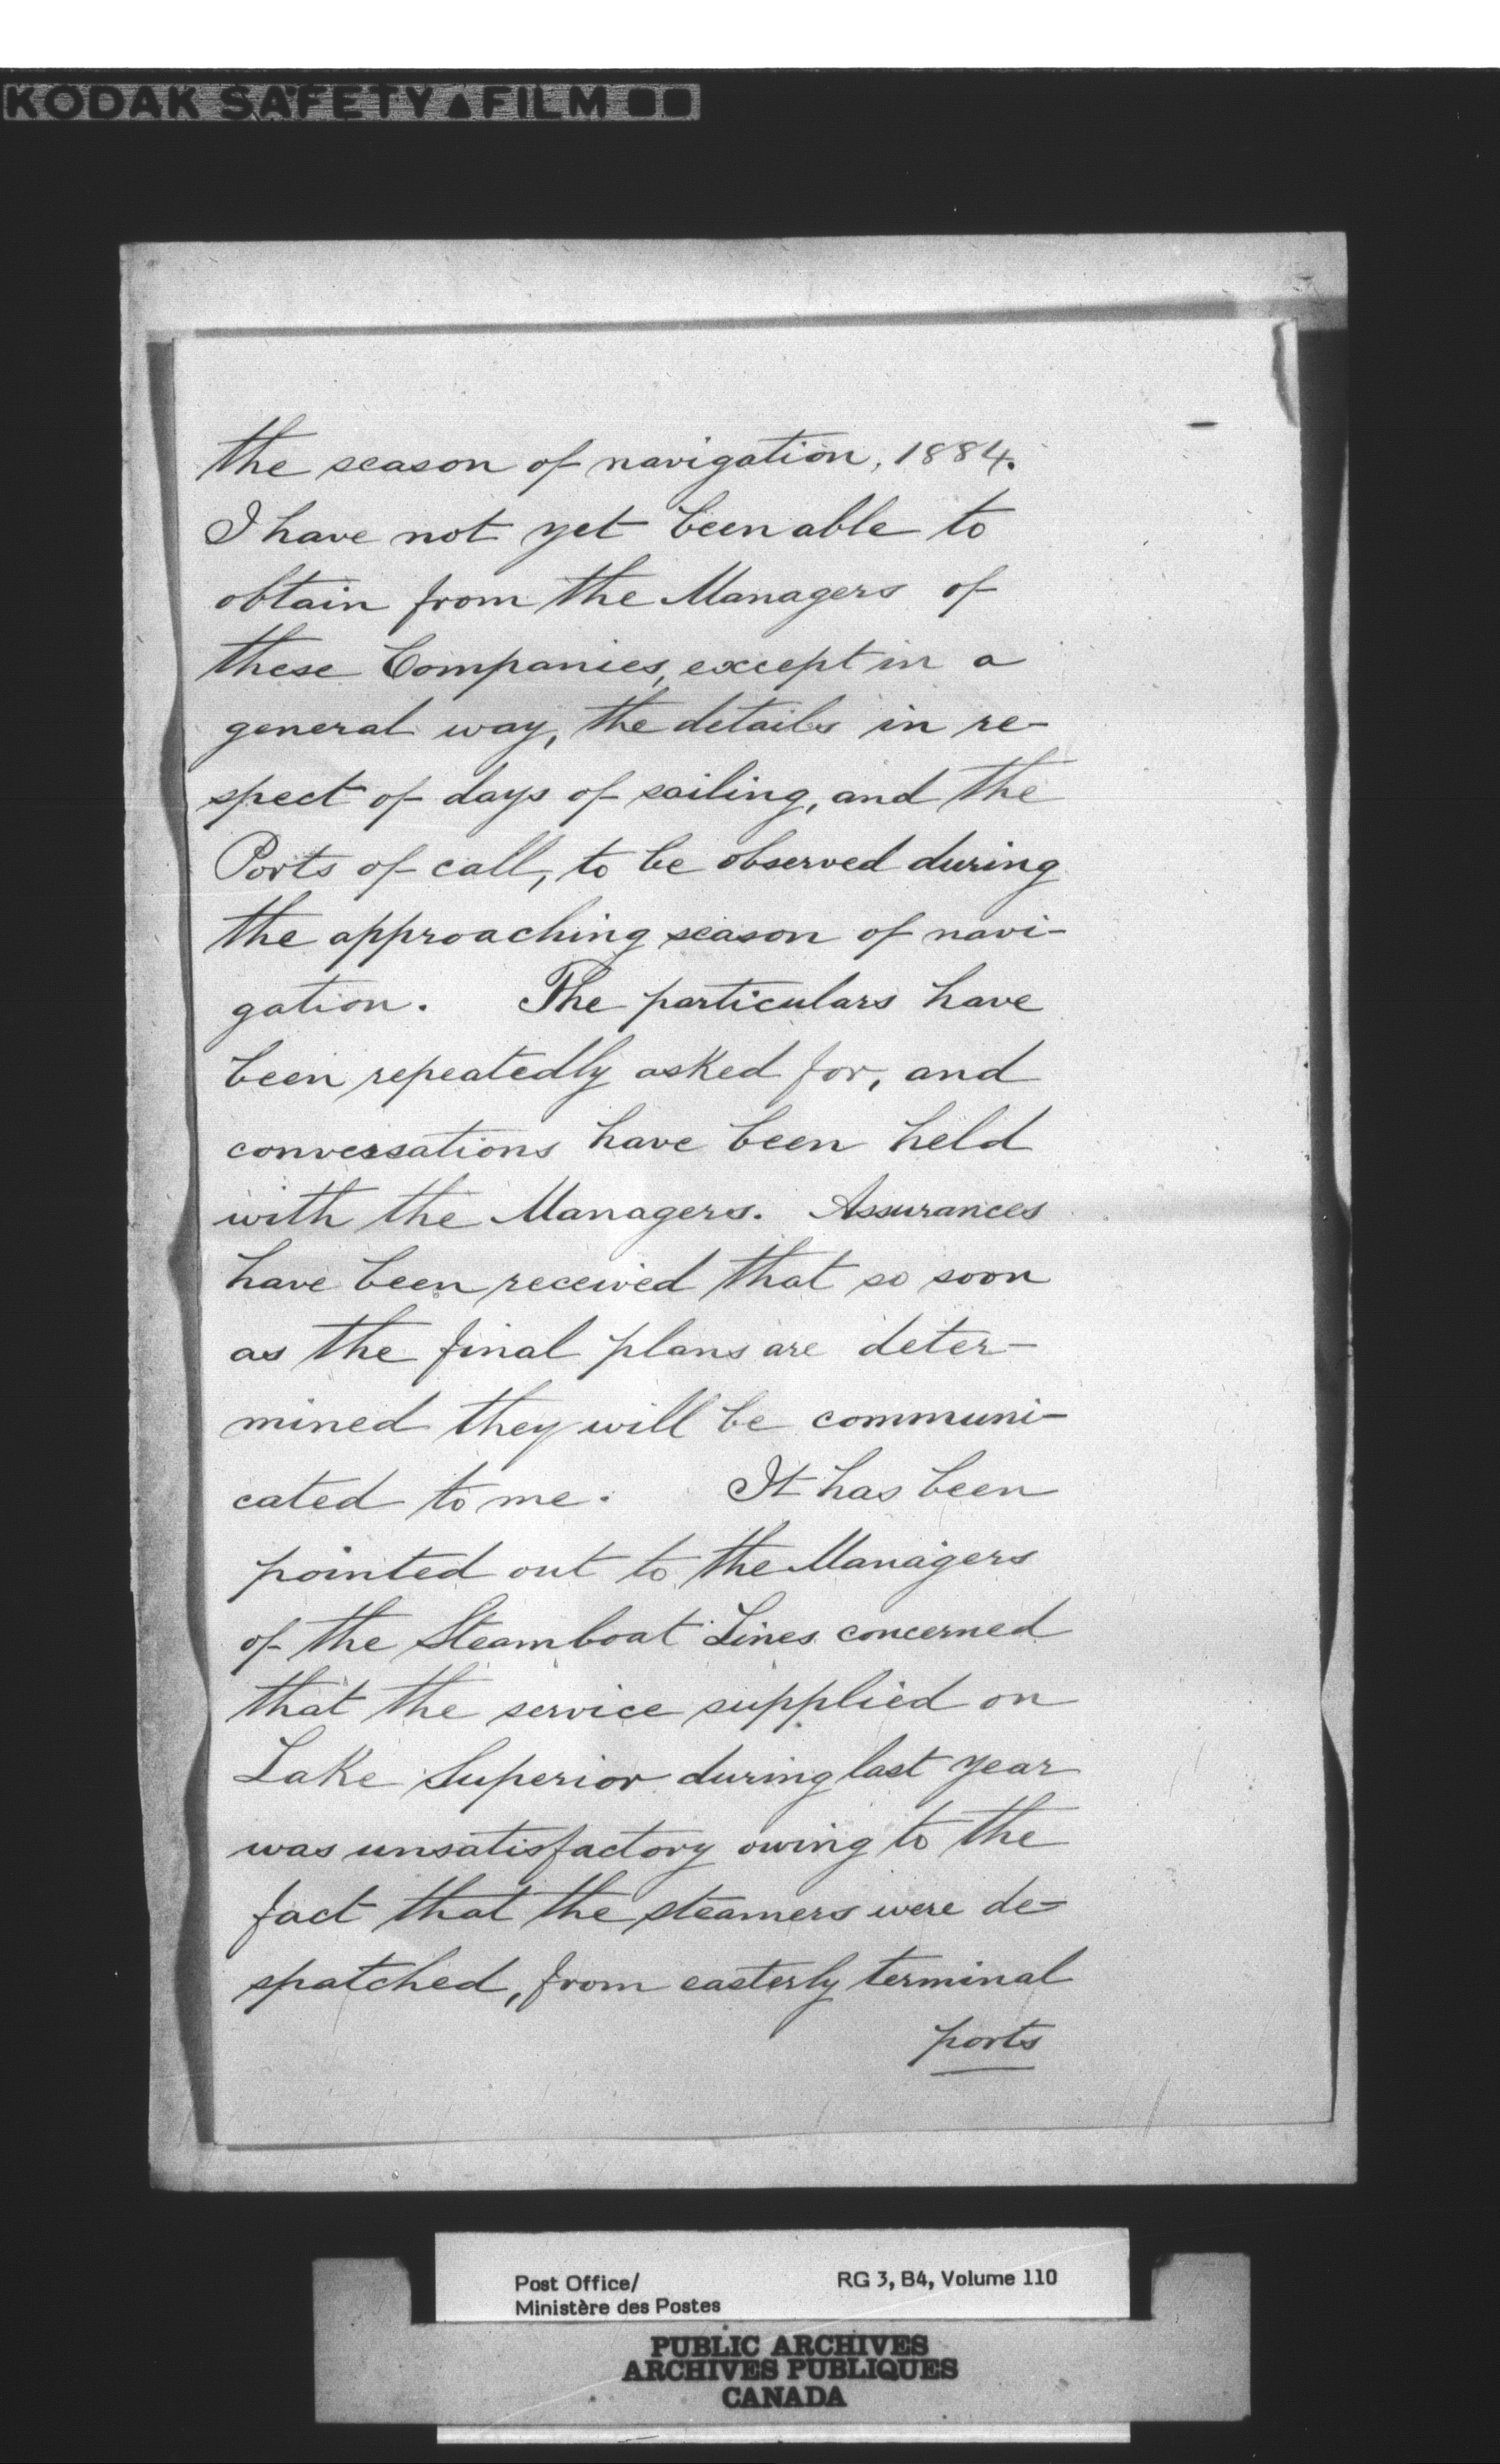 KODAK SAFETY ▲ FILM ■■
the season of navigation, 1884.
I have not yet been able to
obtain from the Managers of
these Companies, except in a
general way, the details in re-
spect of days of sailing, and the
Ports of call, to be observed during
the approaching season of navi-
gation. The particulars have
been repeatedly asked for, and
conversations have been held
with the Managers. Assurances
have been received that so soon
as the final plans are deter-
mined they will be communi-
cated to me. It has been
pointed out to the Managers
of the Steamboat Lines concerned
that the service supplied on
Lake Superior during last year
was unsatisfactory owing to the
fact that the steamers were de=
spatched, from easterly terminal
ports
Post Office/ RG 3, B4, Volume 110
Ministère des Postes
PUBLIC ARCHIVES
ARCHIVES PUBLIQUES
CANADA